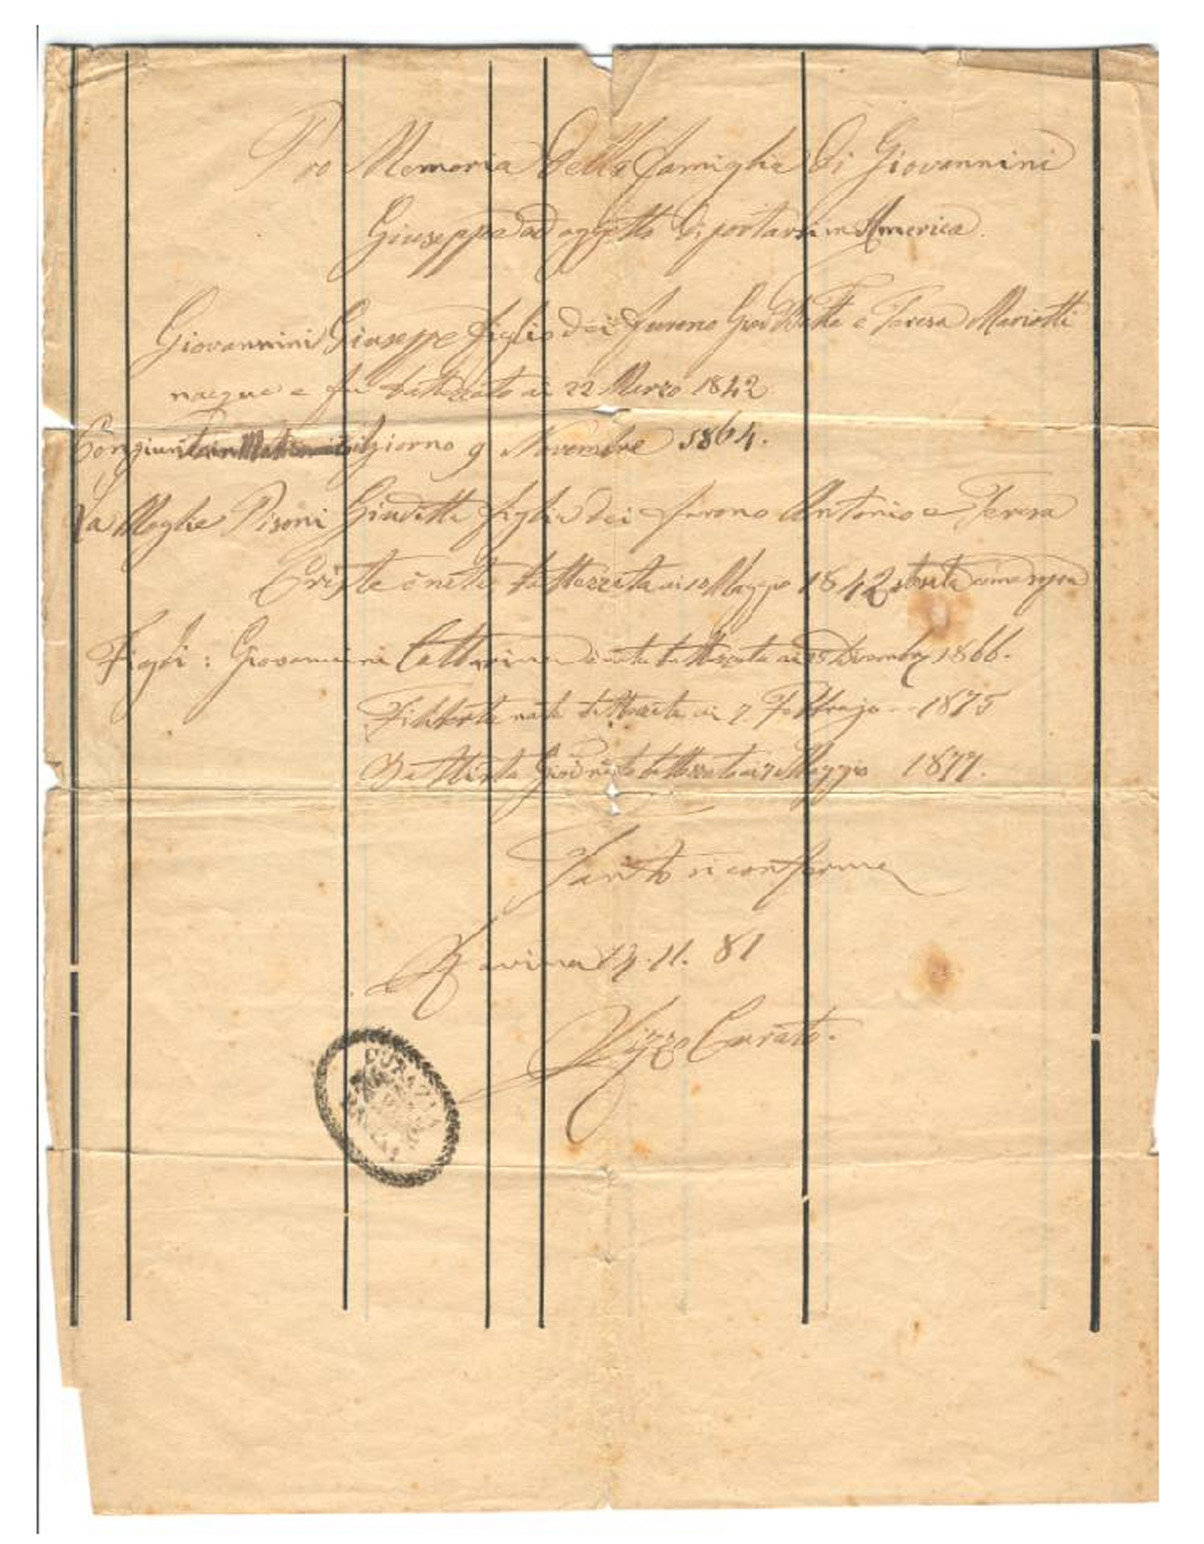 Pro Memoria della famiglia di Giovannini
Giuseppe ad oggetto di portarsi in America.
Giovannini Giuseppe figlio dei furono Giov Batta e Teresa Mariotti
nacque e fu battezzato ai 22 Marzo 1842
Congiunto in Matrimonio il giorno 9 Novembre 1864.
La Moglie Pisoni Giuditta figlia dei furono Antonio e Teresa
è nata battezzata ai 12 Maggio 1842 come sopra
Figli: Giovannini Catterina è nata battezzata ai 15 Dicembre 1866.
nata battezzata ai 7 Febbrajo 1875
Battista Giov nato battezzato ai 7 Maggio 1877.
Tanto si conferma
Ravina 14.11.81
Curato.